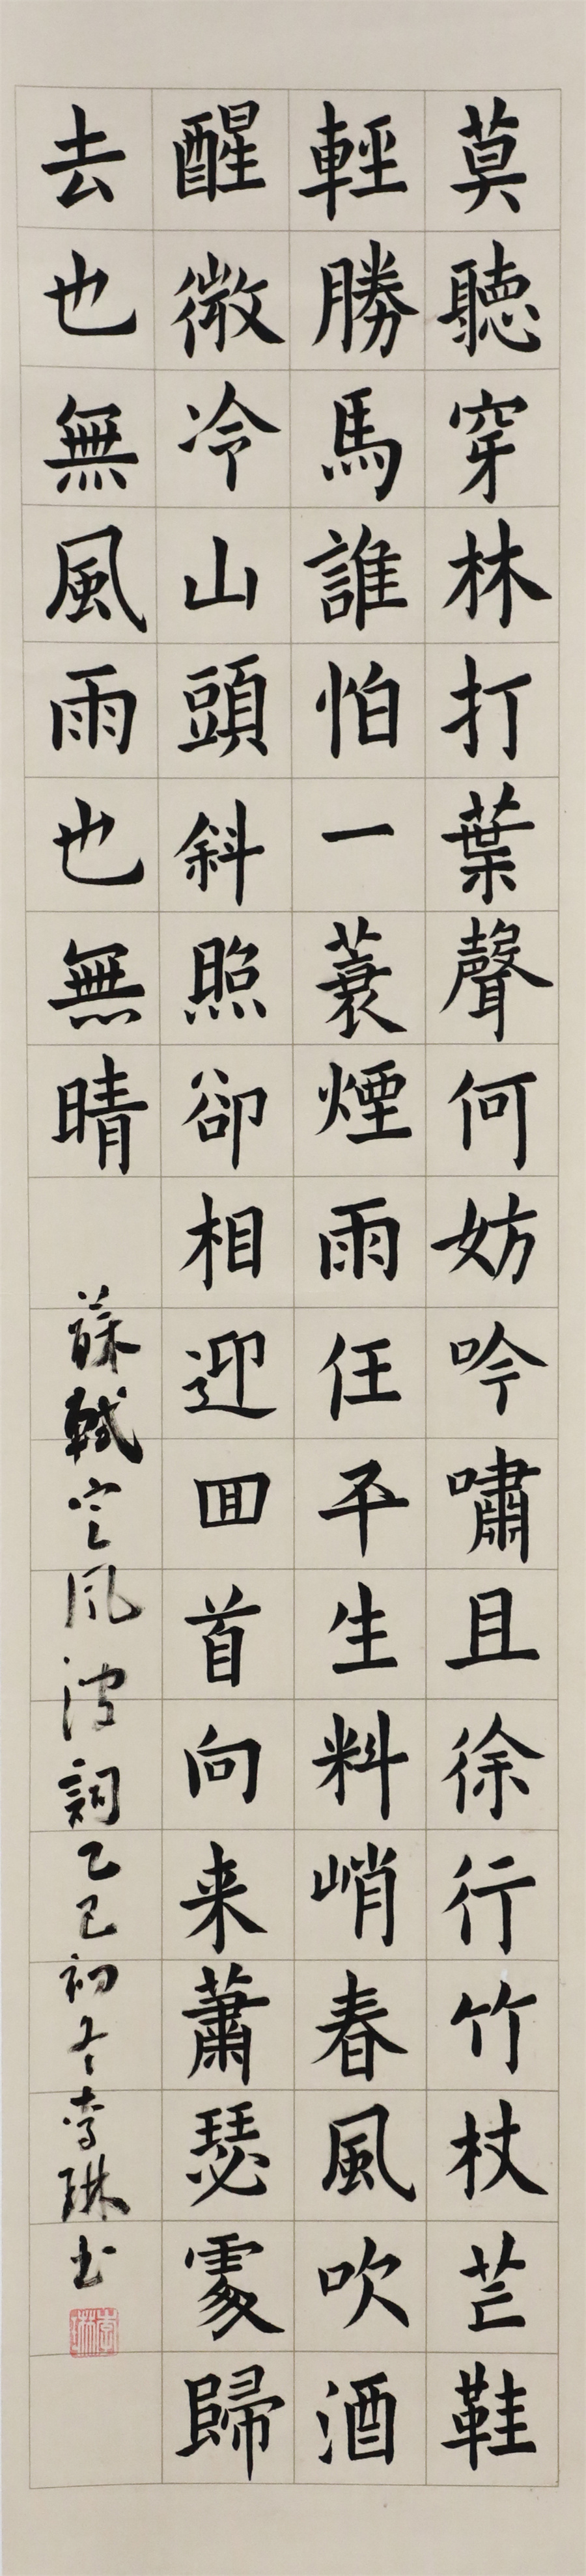 莫聽穿林打葉聲何妨吟嘯且徐行竹杖芒鞋
輕勝馬誰怕一蓑煙雨任平生料峭春風吹酒
醒微冷山頭斜照卻相迎回首向来蕭瑟處歸
去也無風雨也無晴
蘇軾定風波詞乙巳初冬李琳书